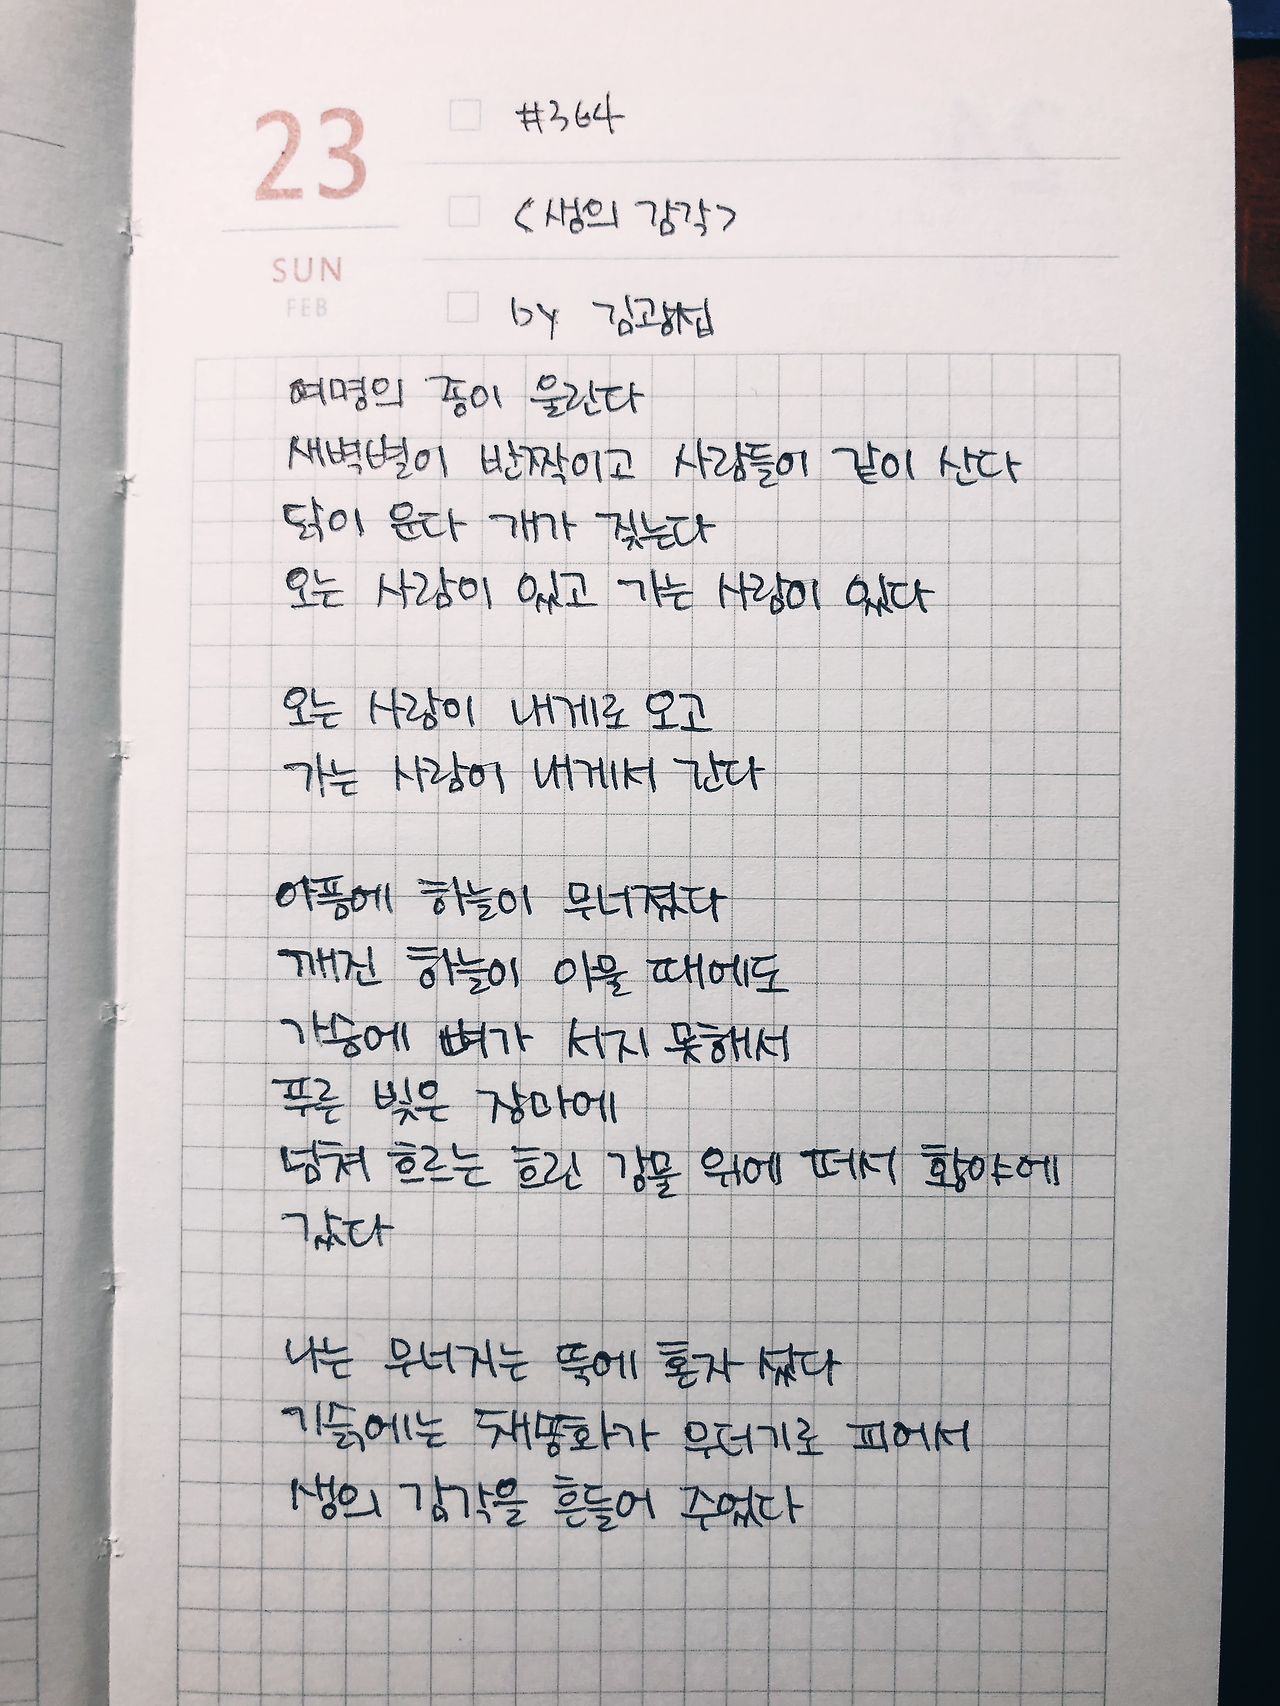 23
SUN
FEB
#364
<생의 감각>
by 김광섭
여명의 종이 울린다
새벽별이 반짝이고 사람들이 같이 산다
닭이 운다 개가 짖는다
오는 사람이 있고 가는 사람이 있다
오는 사람이 내게로 오고
가는 사람이 내게서 간다
아픔에 하늘이 무너졌다
깨진 하늘이 아물 때에도
가슴에 뼈가 서지 못해서
푸른 빛은 장마에
넘쳐 흐르는 흐린 강물 위에 떠서 황야에
갔다
나는 무너지는 뚝에 혼자 섰다
기슭에는 채송화가 무더기로 피어서
생의 감각을 흔들어 주었다